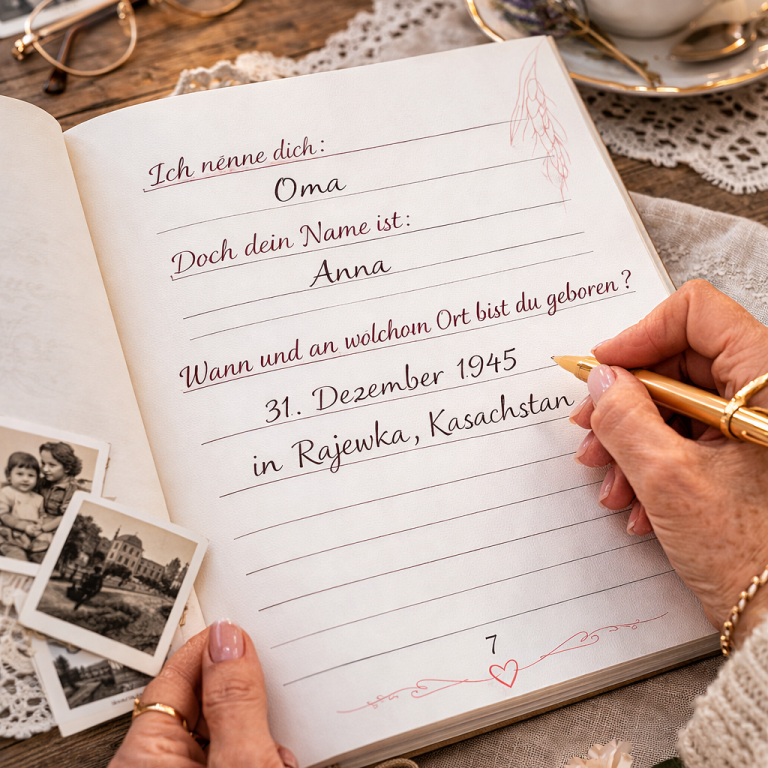 Ich nénne dich:
Oma
Doch dein Name ist:
Anna
Wann und an wölchom Ort bist du geboren?
31. Dezember 1945
in Rajewka, Kasachstan
7